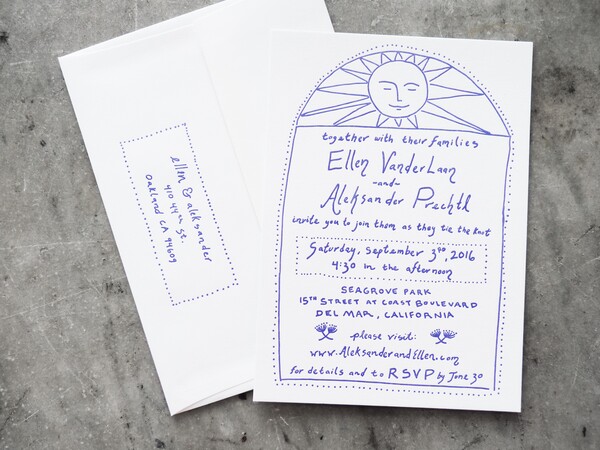 ellen & aleksander
410 44th St.
Oakland CA 94609
together with their families
Ellen VanderLaan
-and-
Aleksander Prechtl
invite you to join them as they tie the knot
Saturday, September 3RD, 2016
4:30 in the afternoon
SEAGROVE PARK
15TH STREET AT COAST BOULEVARD
DEL MAR, CALIFORNIA
please visit:
www.AleksanderandEllen.com
for details and to RSVP by June 30